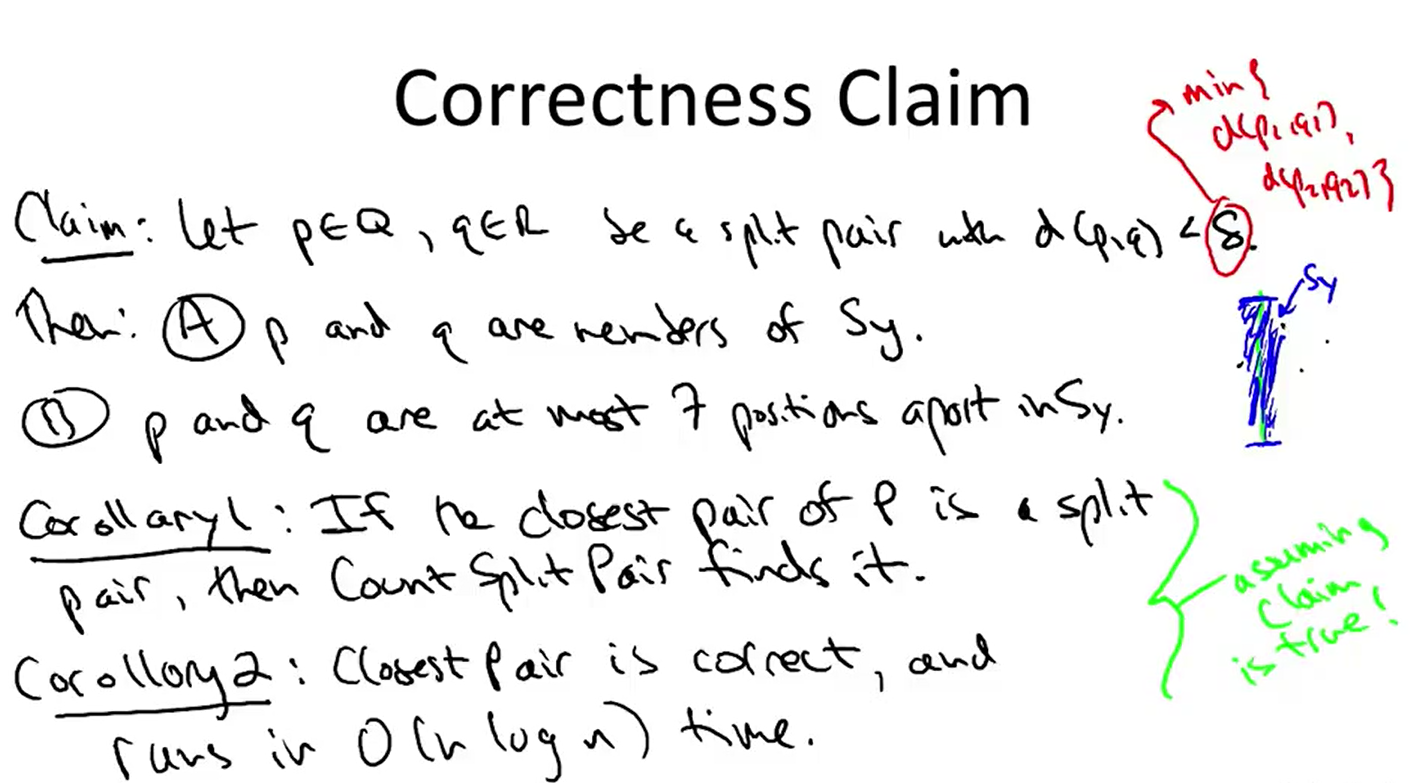 Correctness Claim
min{
d(p1,q1),
d(p2,q2)}
Claim: Let p∈Q, q∈R be a split pair with d(p,q) < δ.
Sy
Then: (A) p and q are members of Sy.
(B) p and q are at most 7 positions apart in Sy.
Corollary1: If the closest pair of P is a split
pair, then Count Split Pair finds it.
assuming
claim
is true!
Corollary2: Closest Pair is correct, and
runs in O(n log n) time.